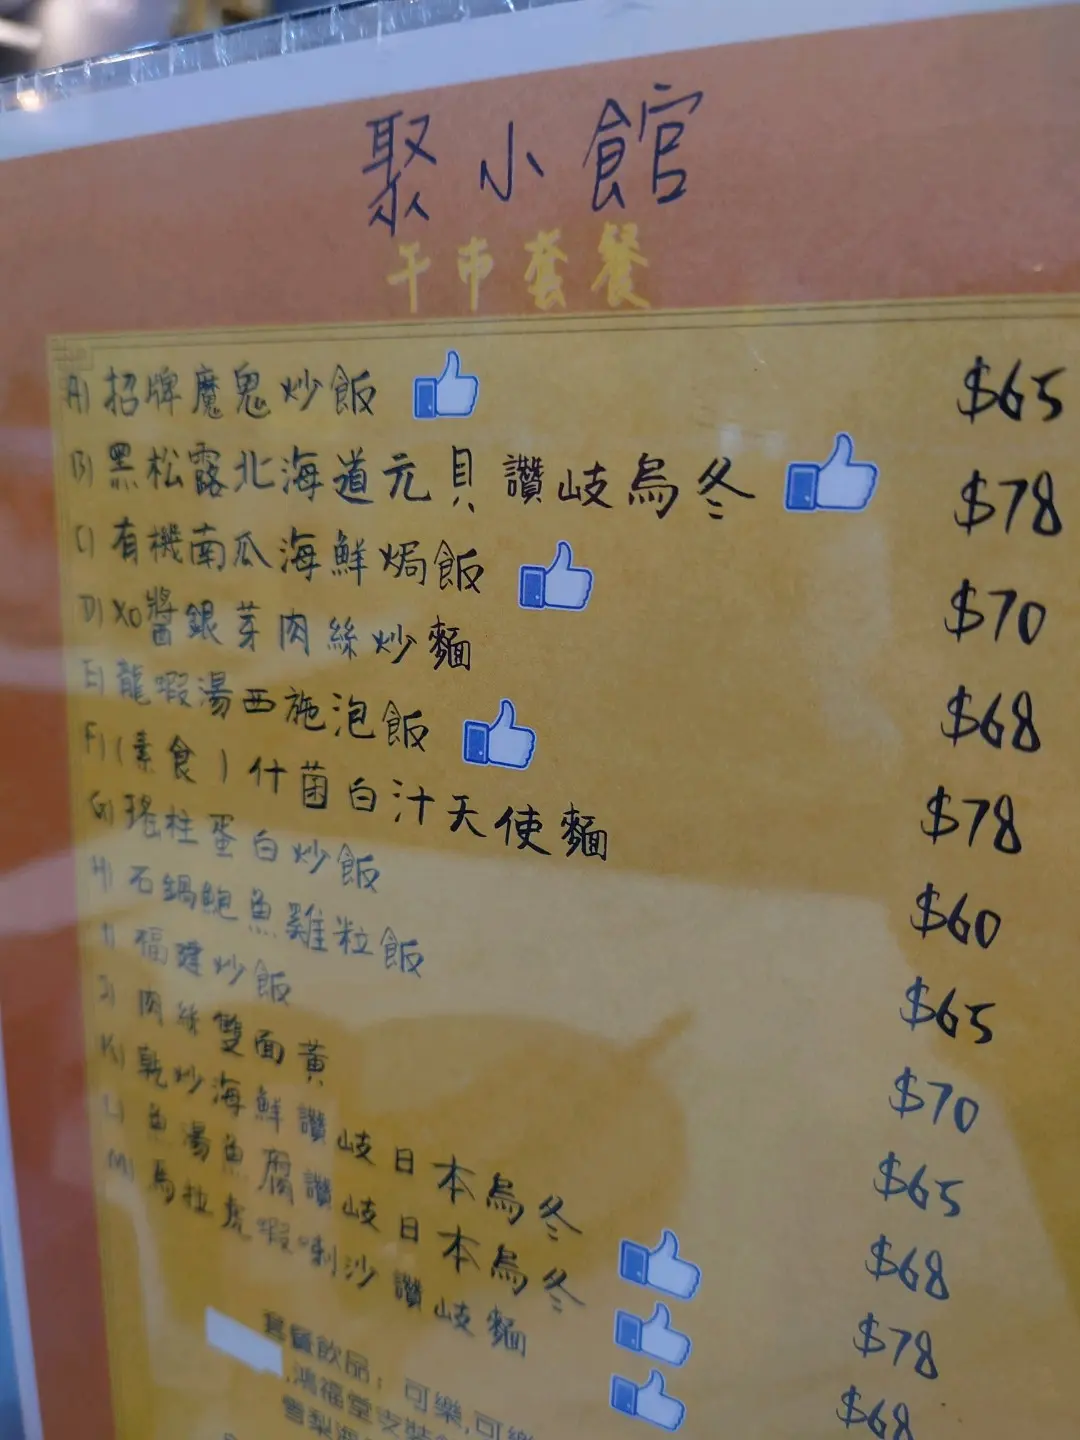 聚小館
午市套餐
A) 招牌魔鬼炒飯 $65
B) 黑松露北海道元貝讚岐烏冬 $78
C) 有機南瓜海鮮焗飯 $70
D) XO醬銀芽肉絲炒麵 $68
E) 龍蝦湯西施泡飯 $78
F) (素食) 什菌白汁天使麵 $60
G) 瑤柱蛋白炒飯 $65
H) 石鍋鮑魚雞粒飯 $70
I) 福建炒飯 $65
J) 肉絲雙面黃 $68
K) 乾炒海鮮讚岐日本烏冬 $78
L) 魚湯魚腐讚岐日本烏冬 $68
M) 馬拉虎蝦喇沙讚岐麵
套餐飲品：可樂,可樂
,鴻福堂支裝
雪梨海